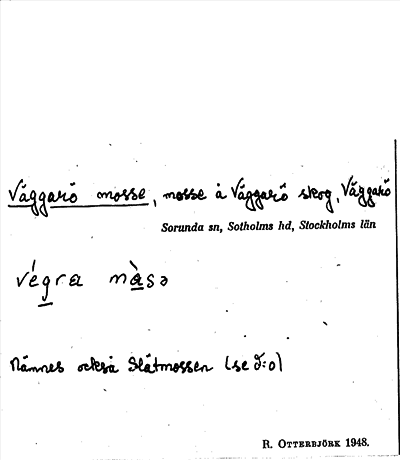 Väggarö mosse, mosse å Väggarö skog, Väggarö
Sorunda sn, Sotholms hd, Stockholms län
végra màsə
Nämnes också Slåtmossen (se d:o)
R. Otterbjörk 1948.